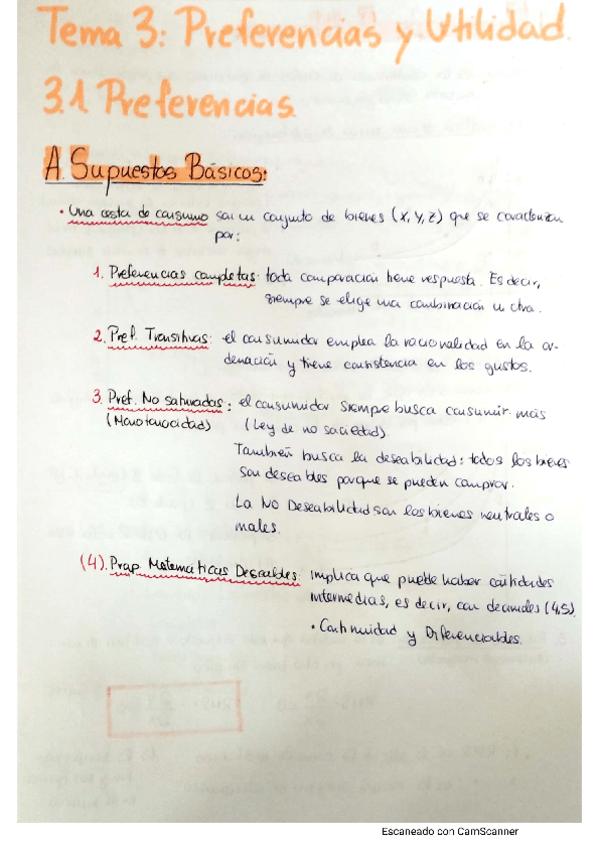 Tema 3: Preferencias y Utilidad.
3.1 Preferencias.
A. Supuestos Básicos:
• Una cesta de consumo son un conjunto de bienes (x, y, z) que se caracterizan
por:
1. Preferencias completas: toda comparación tiene respuesta. Es decir,
siempre se elige una combinación u otra.
2. Pref. Transitivas: el consumidor emplea la racionalidad en la or-
denación y tiene consistencia en los gustos.
3. Pref. No saturadas: el consumidor siempre busca consumir más
(Monotonocidad) (Ley de no saciedad).
También busca la deseabilidad: todos los bienes
son deseables porque se pueden comprar.
La No Deseabilidad son los bienes neutrales o
males.
(4). Prop. Matemáticas Deseables: implica que puede haber cantidades
intermedias, es decir, con decimales (4,5).
• Continuidad y Diferenciables.
Escaneado con CamScanner